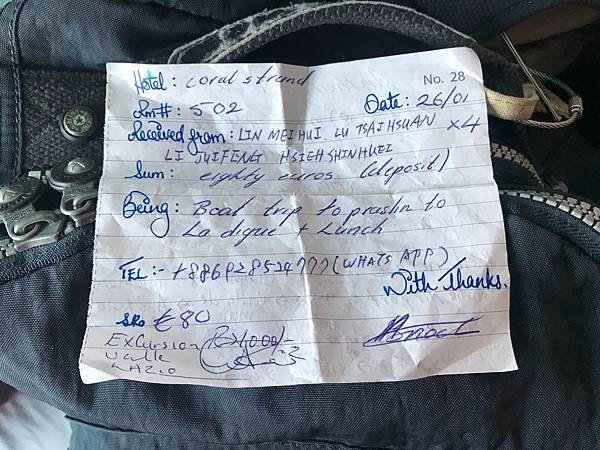 Hotel: Coral strand
No. 28
Rm#: 502
Date: 26/01
Received from: LIN MEI HUI, LU TSAI HSUAN x4
LI JUIFENG HSIEH SHIN HUEI
Sum: eighty euros (deposit)
Being: Boat trip to praslin to
La digue + Lunch
TEL:- +886928524777 (WHATS APP)
With Thanks.
SRs €80
EXCursion